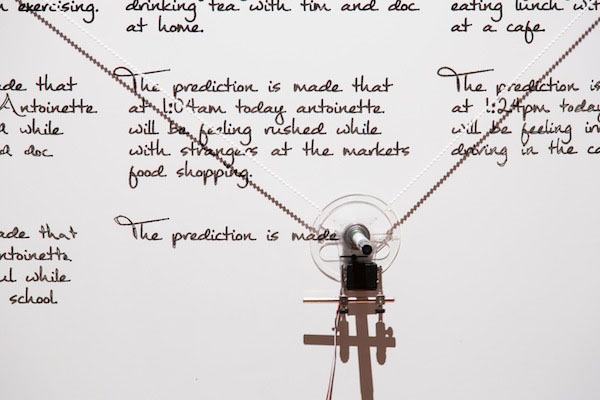 exercising.
ade that
Antoinette
while
doc
ade that
ntoinette
ul while
school.
drinking tea with tim and doc
at home.
The prediction is made that
at 1:04am today antoinette
will be feeling rushed while
with strangers at the markets
food shopping.
The prediction is made
eating lunch wit
at a cafe.
The prediction is
at 1:24pm today
will be feeling in
driving in the ca